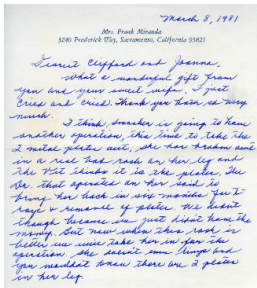 March 8, 1981
Mrs. Frank Miranda
3240 Frederick Way, Sacramento, California 95821
Dearest Clifford and Joanna.
What a wonderful gift from
you and your sweet wife. I just
cried and cried. Thank you both so very
much.
I think, Smacker is going to have
another operation, this time to take the
2 metal plates out, she has broken out
in a real bad rash on her leg and
the Vet thinks it is the plates. The
Dr. that operated on her said to
bring her back in six months for X-
rays & removal of plates. We didn't
though because we just didn't have the
money. But now when this rash is
better we will take her in for the
operation, she doesn't even limp and
you wouldn't know there are 2 plates
in her leg.